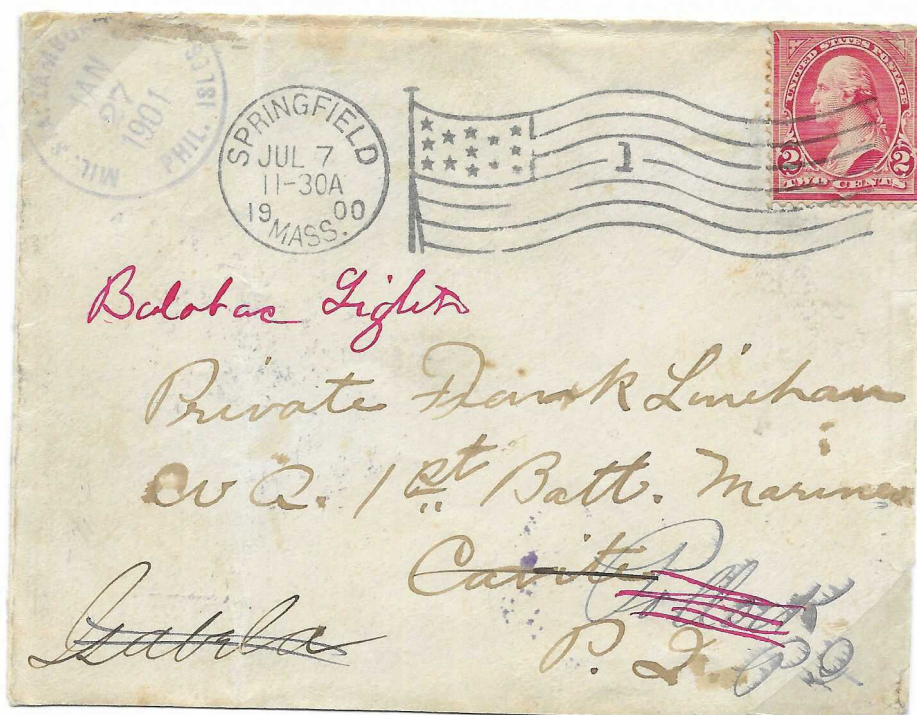 MIL. STA.
JAN
27
1901
PHIL. ISLDS
SPRINGFIELD
JUL 7
11-30A
19 00
MASS.
1
UNITED STATES POSTAGE
2 2
TWO CENTS
Balabac Light
Private Frank Linehan
Co A. 1st Batt. Marines
Cavite Pollok
Isabela
P. I. P I